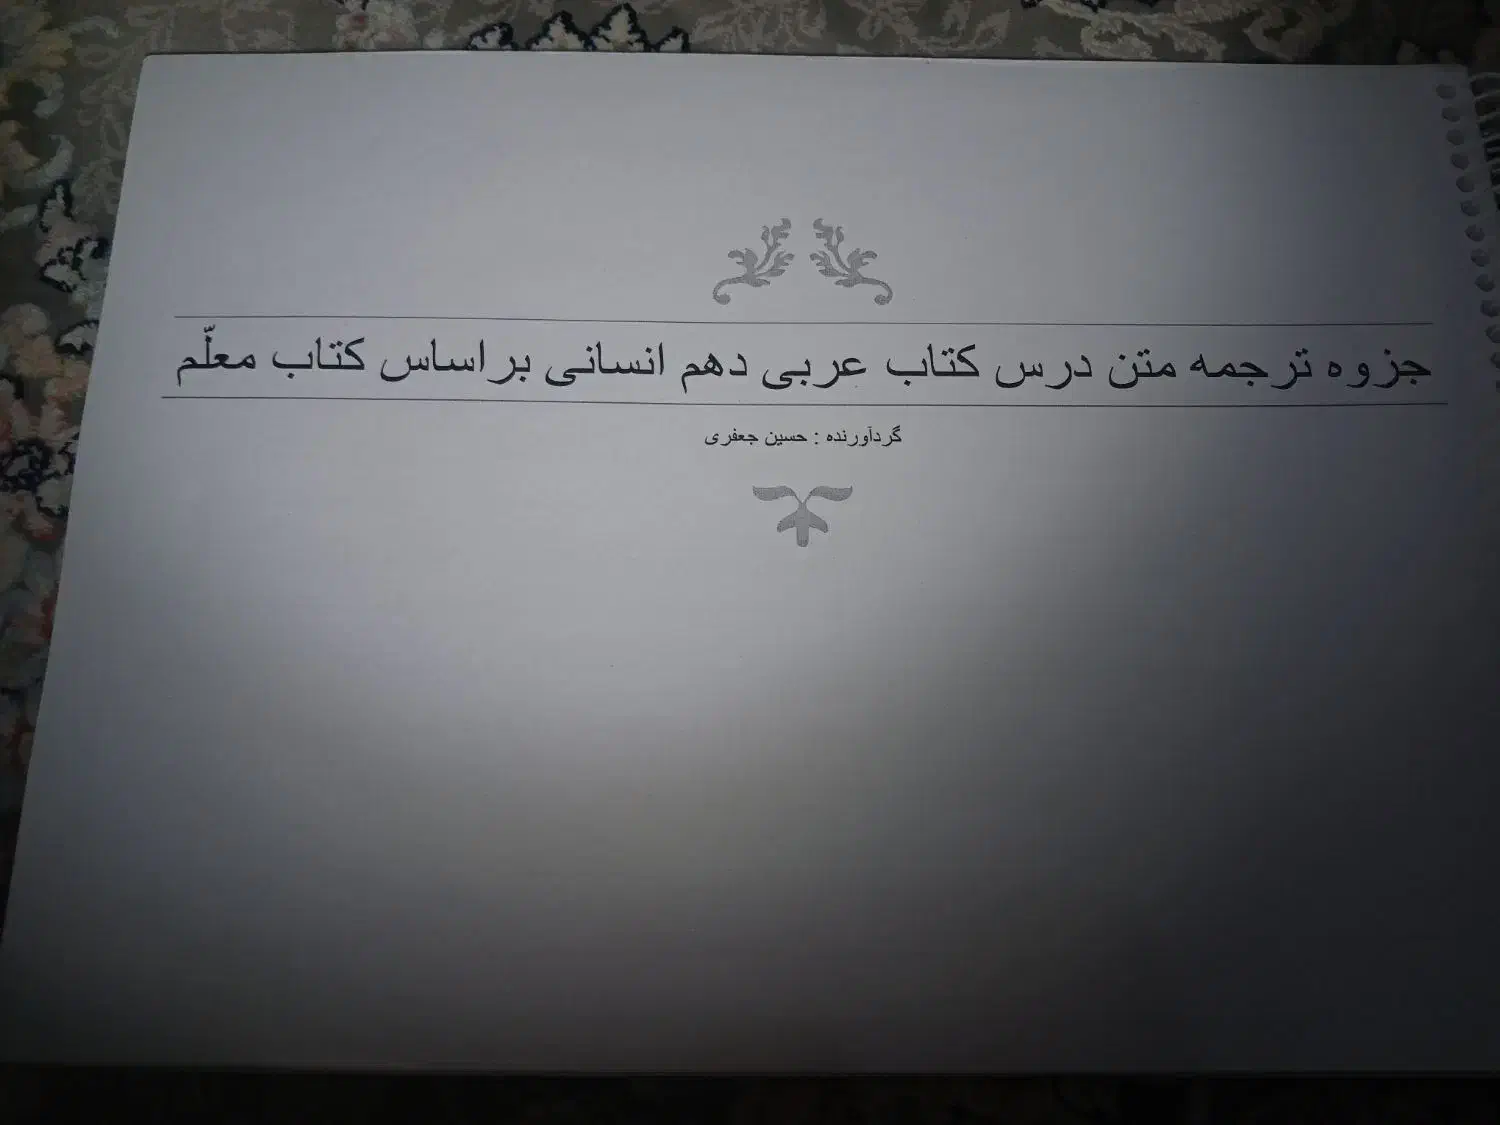 جزوه ترجمه متن درس کتاب عربی دهم انسانی بر اساس کتاب معلّم
گردآورنده : حسین جعفری